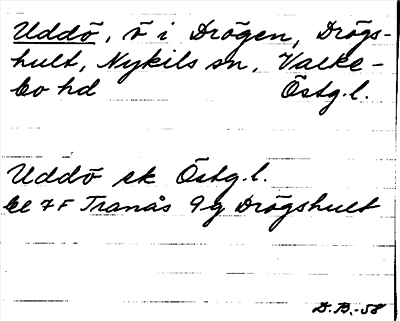 Uddö, ö i Drögen, Drögs-
hult, Nykils sn, Valke-
bo hd Östg.l.
Uddö ek Östg.l.
bl 7F Tranås 9g Drögshult
D.B.-58